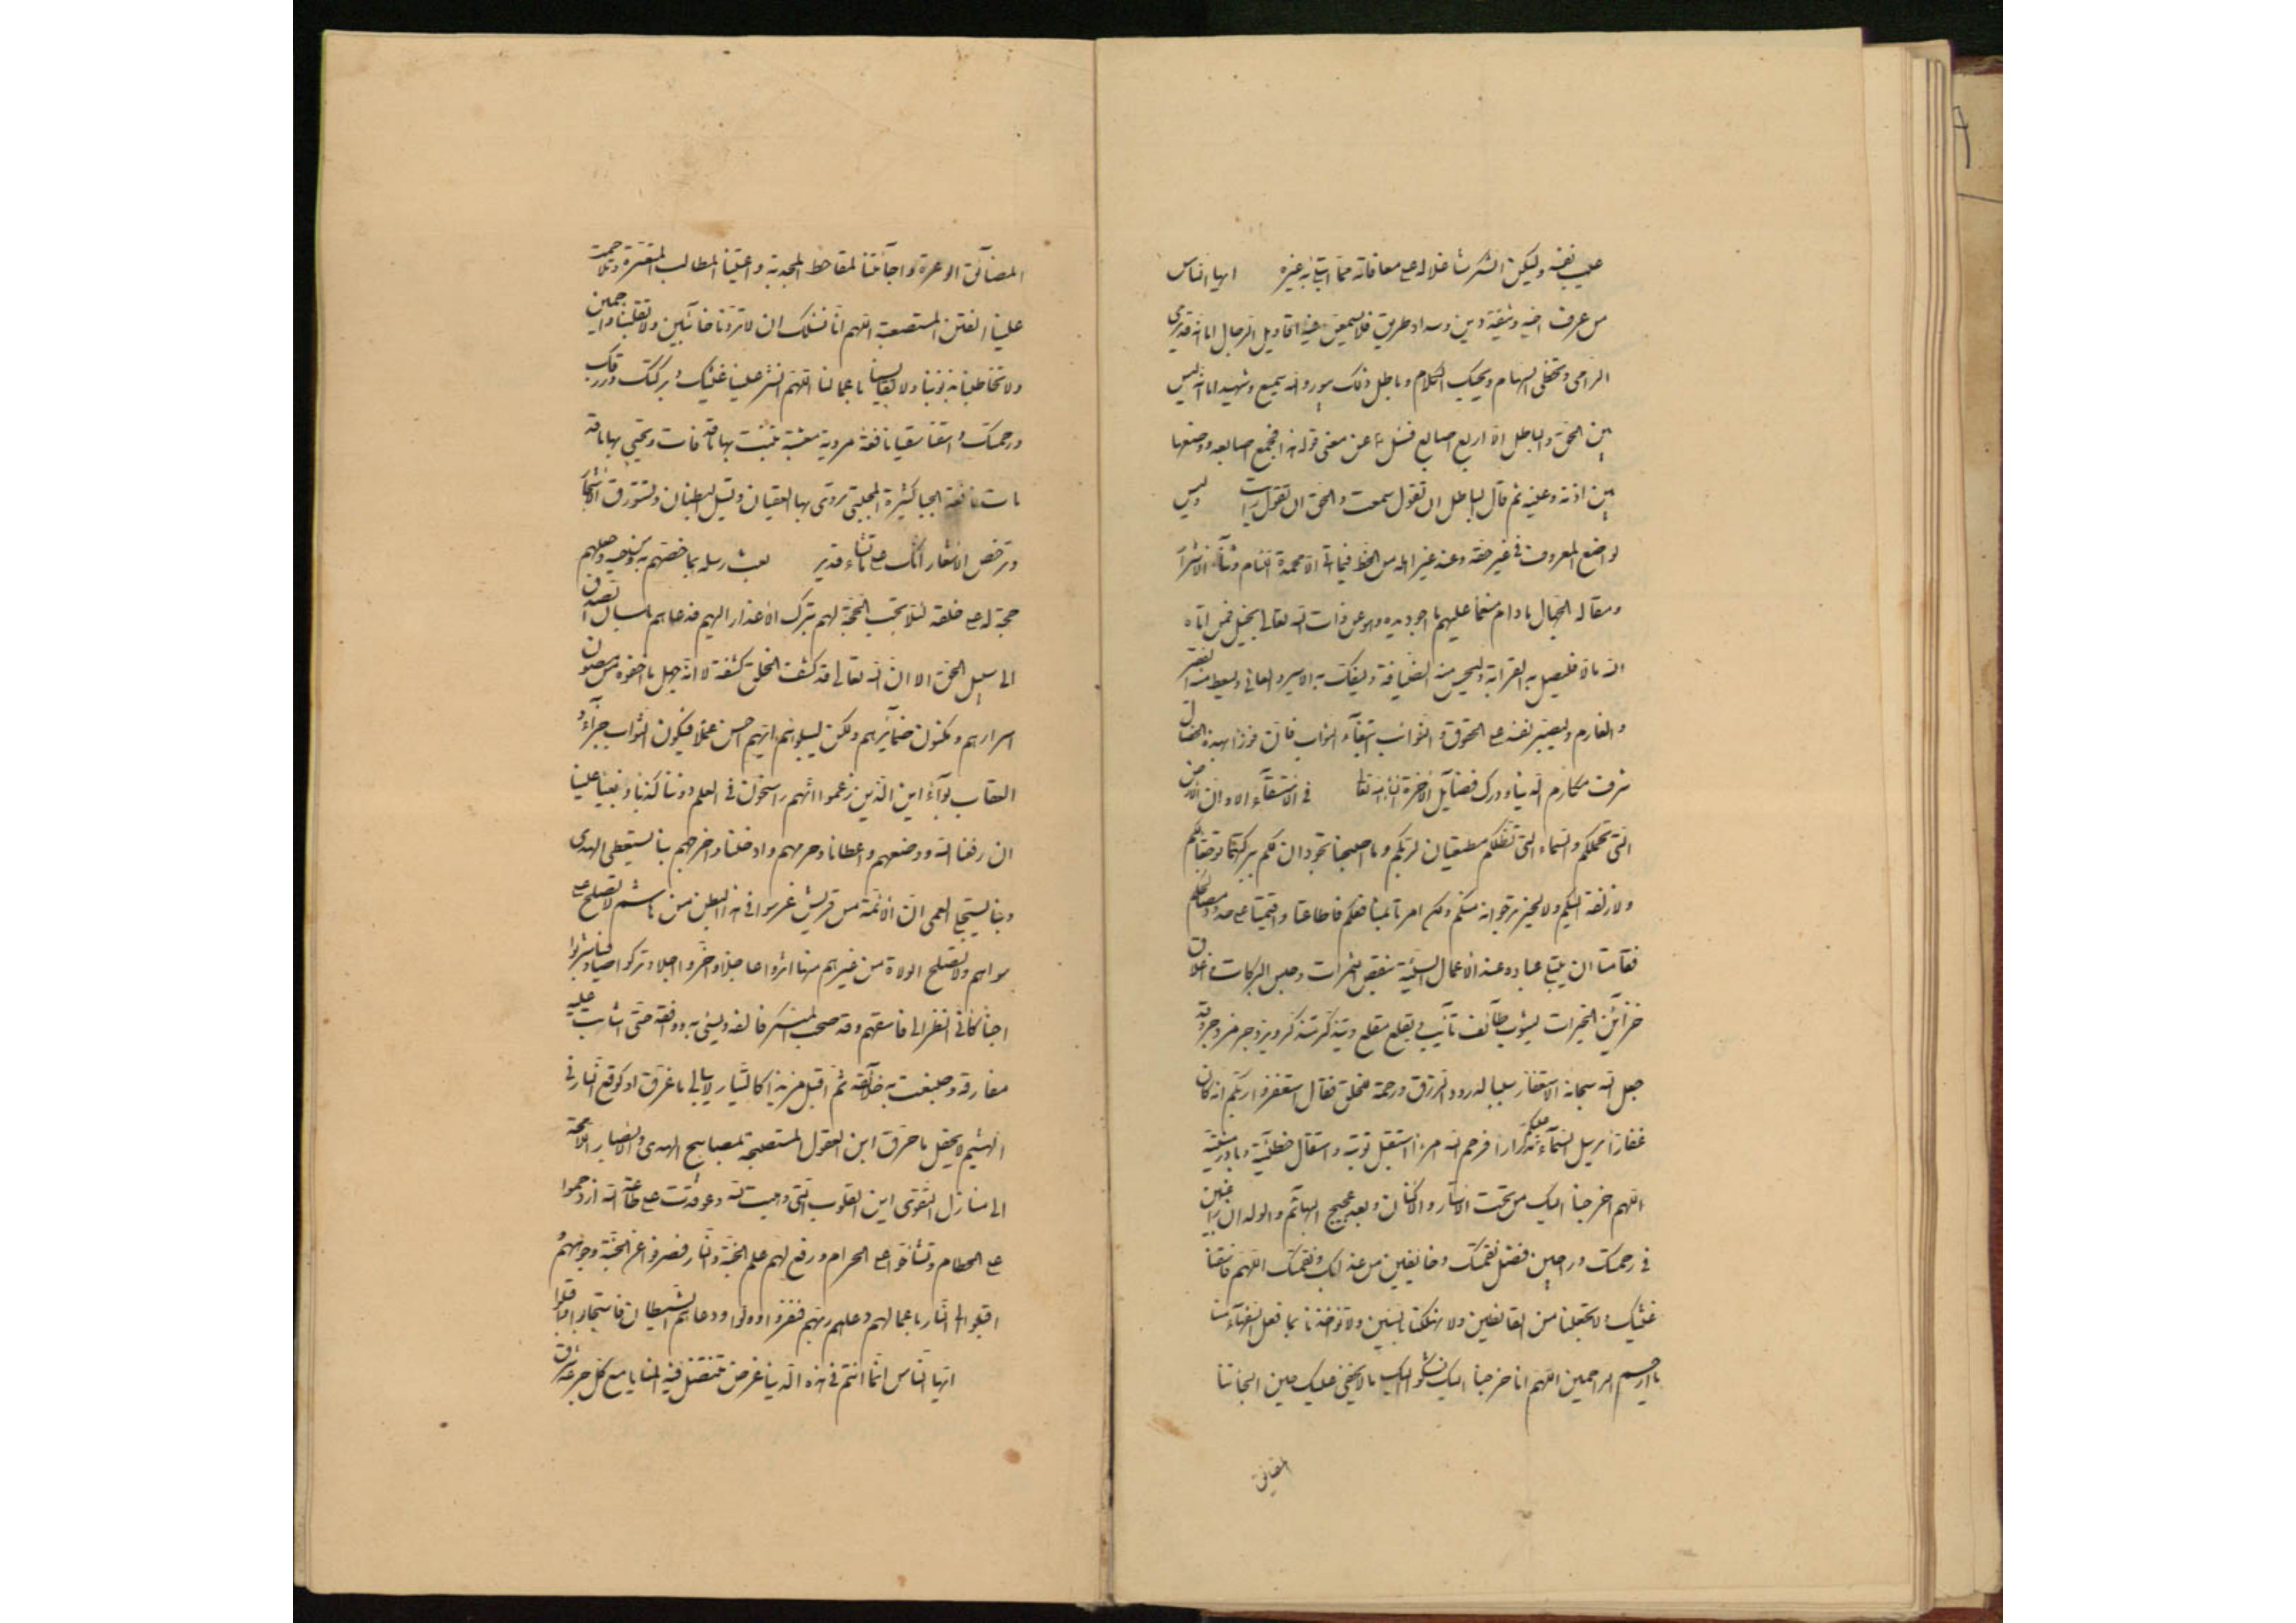 عيب نفسه وليكن الشكر شاغلا له على معافاته مما ابتلي به غيره ايها الناس
من عرف من اخيه وثيقة دين وسداد طريق فلا يسمعن فيه اقاويل الرجال اما انه قد يرمي
الرامي وتخطي السهام ويحيك الكلام وباطل ذلك يبور والله سميع وشهيد اما انه ليس
بين الحق والباطل الا اربع اصابع فسئل عن معنى قوله هذا فجمع اصابعه ووضعها
بين اذنه وعينه ثم قال الباطل ان تقول سمعت والحق ان تقول رايت وليس
لواضع المعروف في غير حقه وعند غير اهله من الحظ فيما اتى الا محمدة اللئام وثناء الاشرار
ومقالة الجهال مادام منعما عليهم ما اجود يده وهو عن ذات الله تعالى بخيل فمن اتاه
الله مالا فليصل به القرابة وليحسن منه الضيافة وليفك به الاسير والعاني وليعط منه الفقير
والغارم وليصبر نفسه على الحقوق والنوائب ابتغاء الثواب فان فوزا بهذه الخصال
شرف مكارم الدنيا ودرك فضائل الاخرة ان شاء الله تعالى في الاستسقاء الا وان الارض
التي تحملكم والسماء التي تظلكم مطيعتان لربكم وما اصبحتا تجودان لكم ببركتهما توجعا لكم
ولا زلفة اليكم ولا لخير ترجوانه منكم ولكن امرتا بمنافعكم فاطاعتا واقيمتا على حدود مصالحكم
فقامتا ان الله يبتلي عباده عند الاعمال السيئة بنقص الثمرات وحبس البركات واغلاق
خزائن الخيرات ليتوب تائب ويقلع مقلع ويتذكر متذكر ويزدجر مزدجر وقد
جعل الله سبحانه الاستغفار سببا لدرور الرزق ورحمة للخلق فقال استغفروا ربكم انه كان
غفارا يرسل السماء عليكم مدرارا فرحم الله امرءا استقبل توبته واستقال خطيئته وبادر منيته
اللهم اخرجنا اليك من تحت الاستار والاكنان وبعد عجيج البهائم والولدان راغبين
في رحمتك وراجين فضل نعمتك وخائفين من عذابك ونقمتك اللهم فاسقنا
غيثك ولا تجعلنا من القانطين ولا تهلكنا بالسنين ولا تؤاخذنا بما فعل السفهاء منا
يا ارحم الراحمين اللهم انا خرجنا اليك نشكو اليك ما لا يخفى عليك حين الجأتنا
المضائق
المضآئق الوعرة واجآءتنا المقاحط المجدبة واعيتنا المطالب المتعسرة وتلاحمت
علينا الفتن المستصعبة اللهم انا نسئلك ان لا تردنا خآئبين ولا تقلبنا واجمين
ولا تخاطبنا بذنوبنا ولا تقايسنا باعمالنا اللهم انشر علينا غيثك وبركتك ورزقك
ورحمتك واسقنا سقيا نافعة مروية معشبة تنبت بها ما قد فات وتحيي بها ما قد
مات نافعة الحيا كثيرة المجتنى تروي بها القيعان وتسيل البطنان وتستورق الاشجار
وترخص الاسعار انك على ما تشاء قدير بعث رسله بما خصهم به من وحيه وجعلهم
حجة له على خلقه لئلا تجب الحجة لهم بترك الاعذار اليهم فدعاهم بلسان الصدق
الى سبيل الحق الا ان الله تعالى قد كشف الخلق كشفة لا انه جهل ما اخفوه من مصون
اسرارهم ومكنون ضمآئرهم ولكن ليبلوهم ايهم احسن عملا فيكون الثواب جزآء و
العقاب بوآء اين الذين زعموا انهم راسخون في العلم دوننا كذبا وبغيا علينا
ان رفعنا الله ووضعهم واعطانا وحرمهم وادخلنا واخرجهم بنا يستعطى الهدى
وبنا يستجلى العمى ان الائمة من قريش غرسوا في هذا البطن من هاشم لا تصلح على
سواهم ولا تصلح الولاة من غيرهم منها آثروا عاجلا واخروا اجلا وتركوا صافيا وشربوا
اجنا كاني انظر الى فاسقهم وقد صحب المنكر فالفه وبسئ به ووافقه حتى شابت عليه
مفارقه وصبغت به خلآئقه ثم اقبل مزبدا كالتيار لا يبالي ما غرق او كوقع النار في
الهشيم لا يحفل ما حرق اين العقول المستصبحة بمصابيح الهدى والابصار اللامحة
الى منازل التقوى اين القلوب التي وهبت لله وعوقدت على طاعة الله ازدحموا
على الحطام وتشاحوا على الحرام ورفع لهم علم الجنة والنار فصرفوا عن الجنة وجوههم و
اقبلوا الى النار باعمالهم دعاهم ربهم فنفروا وولوا ودعاهم الشيطان فاستجابوا واقبلوا
ايها الناس انما انتم في هذه الدنيا غرض تنتضل فيه المنايا مع كل جرعة شرق